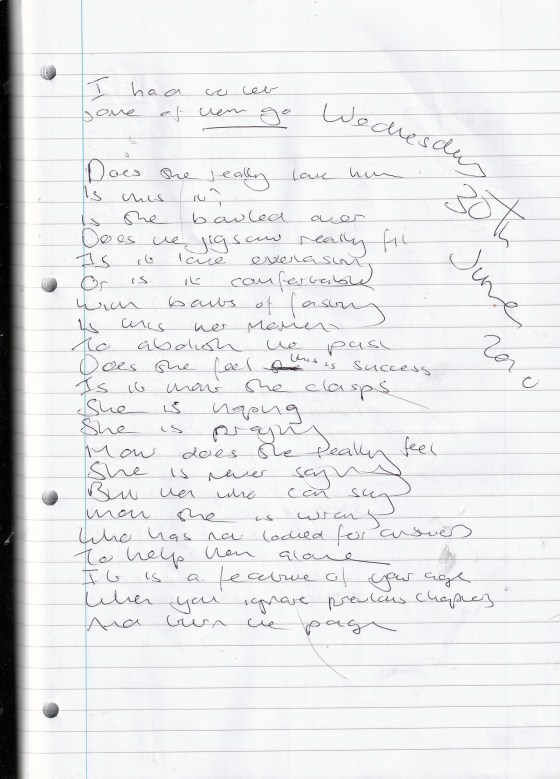 I had to let
some of them go
Wednesday
30th
June
2010
Does she really love him
Is this it?
Is she bowled over
Does the jigsaw really fit
Is it love everlasting
Or is it comfortable
With bouts of fasting
Is this her
To abolish the past
Does she feel this is success
Is it that she clasps
She is hoping
She is praying
How does she really feel
She is never saying
But then who can say
that she is wrong
Who has not looked for answers
To help them along
It is a feature of your age
When you ignore previous chapters
And turn the page